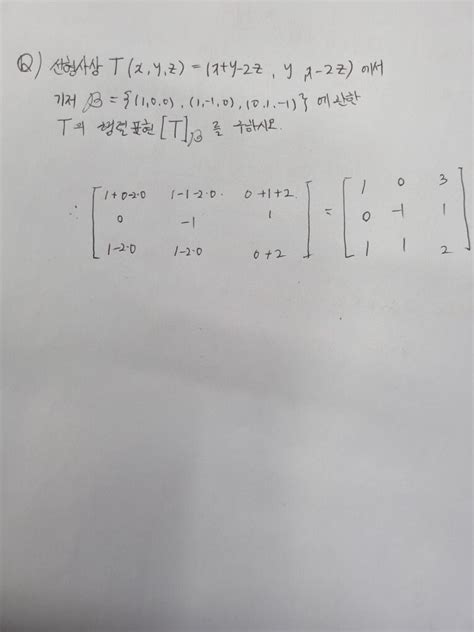 Q) 선형사상 T(x,y,z) = (x+y-2z, y, x-2z) 에서
기저 β = {(1,0,0), (1,-1,0), (0,1,-1)} 에 관한
T의 행렬표현 [T]β 를 구하시오.
∴ [ 1+0-2·0 1-1-2·0 0+1+2 ] = [ 1 0 3 ]
0 -1 1 0 -1 1
1-2·0 1-2·0 0+2 1 1 2